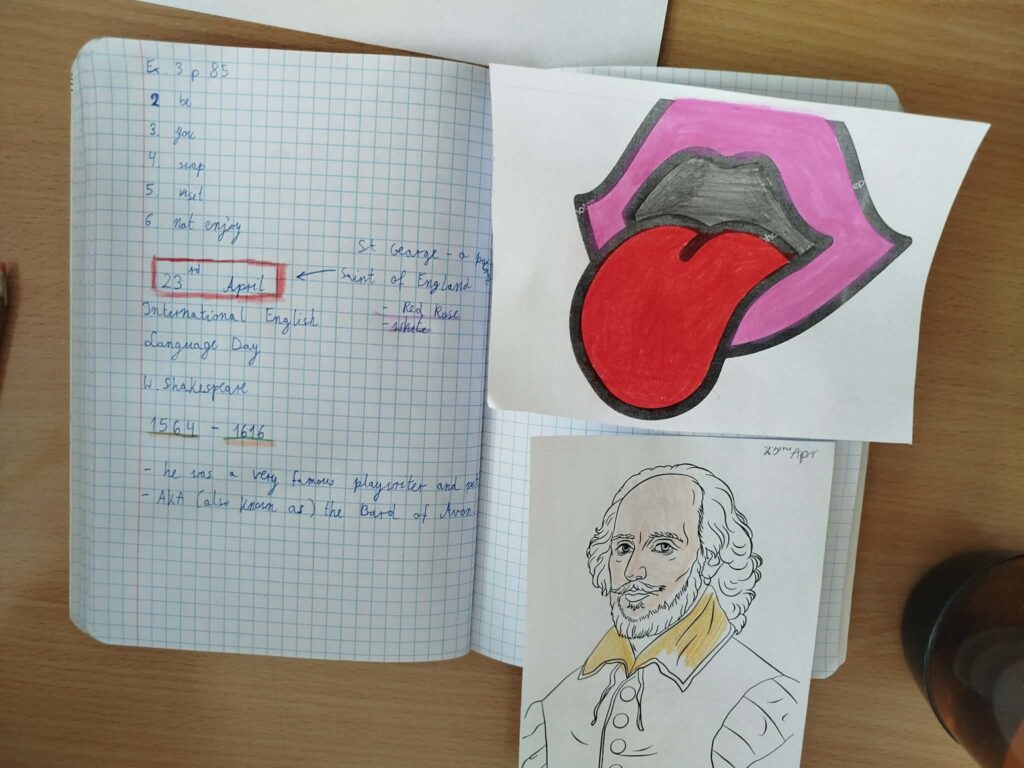 Ex. 3 p 85
2 be
3. you
4. swap
5. visit
6 not enjoy
St George - a
23rd April
Saint of England
International English
- Red Rose
- white
Language Day
W. Shakespeare
1564 - 1616
- he was a very famous playwriter and
- AKA (also known as) the Bard of Avon
Apr